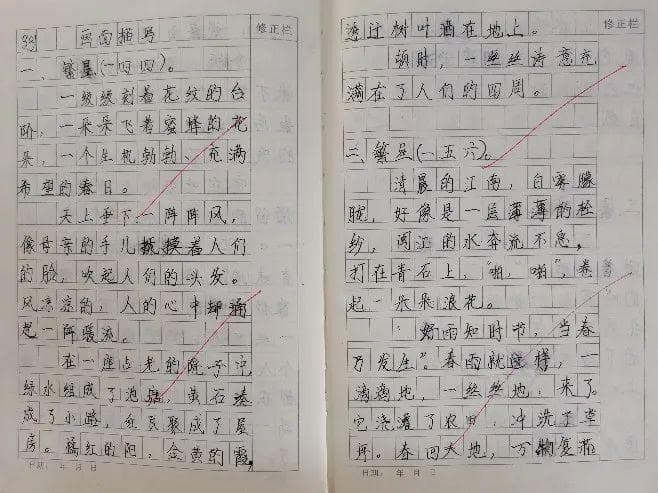 33 画面描写 修正栏
一、繁星(一四四)。
一级级刻着花纹的台
阶,一朵朵飞着蜜蜂的花
朵,一个生机勃勃、充满
希望的春日。
天上垂下一阵阵风,
像母亲的手儿抚摸着人们
的脸,吹起人们的头发。
风凉凉的,人的心中却涌
起一阵暖流。
在一座古老的院子中
绿水组成了池塘,黄石凑
成了小路,红瓦聚成了屋
房。橘红的阳,金黄的霞,
日期: 年 月 日
修正栏
透过树叶洒在地上。
顿时,一丝丝诗意充
满在了人们的四周。
二、繁星(一五六)。
清晨的江南,白雾朦
胧,好像是一层薄薄的轻
纱,闽江的水奔流不息,
打在青石上,“啪,啪”,卷
起一朵朵浪花。
“好雨知时节,当春
乃发生”。春雨就这样,一
滴滴地,一丝丝地,来了。
它浇灌了农田,冲洗了草
坪。春回大地,万物复苏
日期: 年 月 日